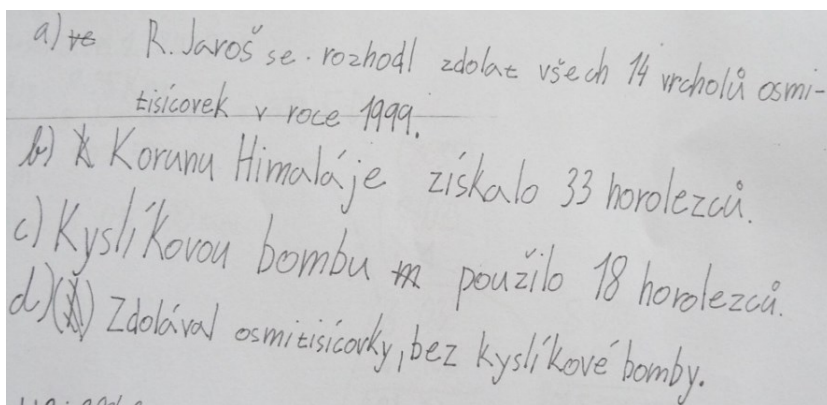 a) R. Jaroš se rozhodl zdolat všech 14 vrcholů osmi-
tisícovek v roce 1999.
b) Korunu Himaláje získalo 33 horolezců.
c) Kyslíkovou bombu použilo 18 horolezců.
d) Zdolával osmitisícovky, bez kyslíkové bomby.